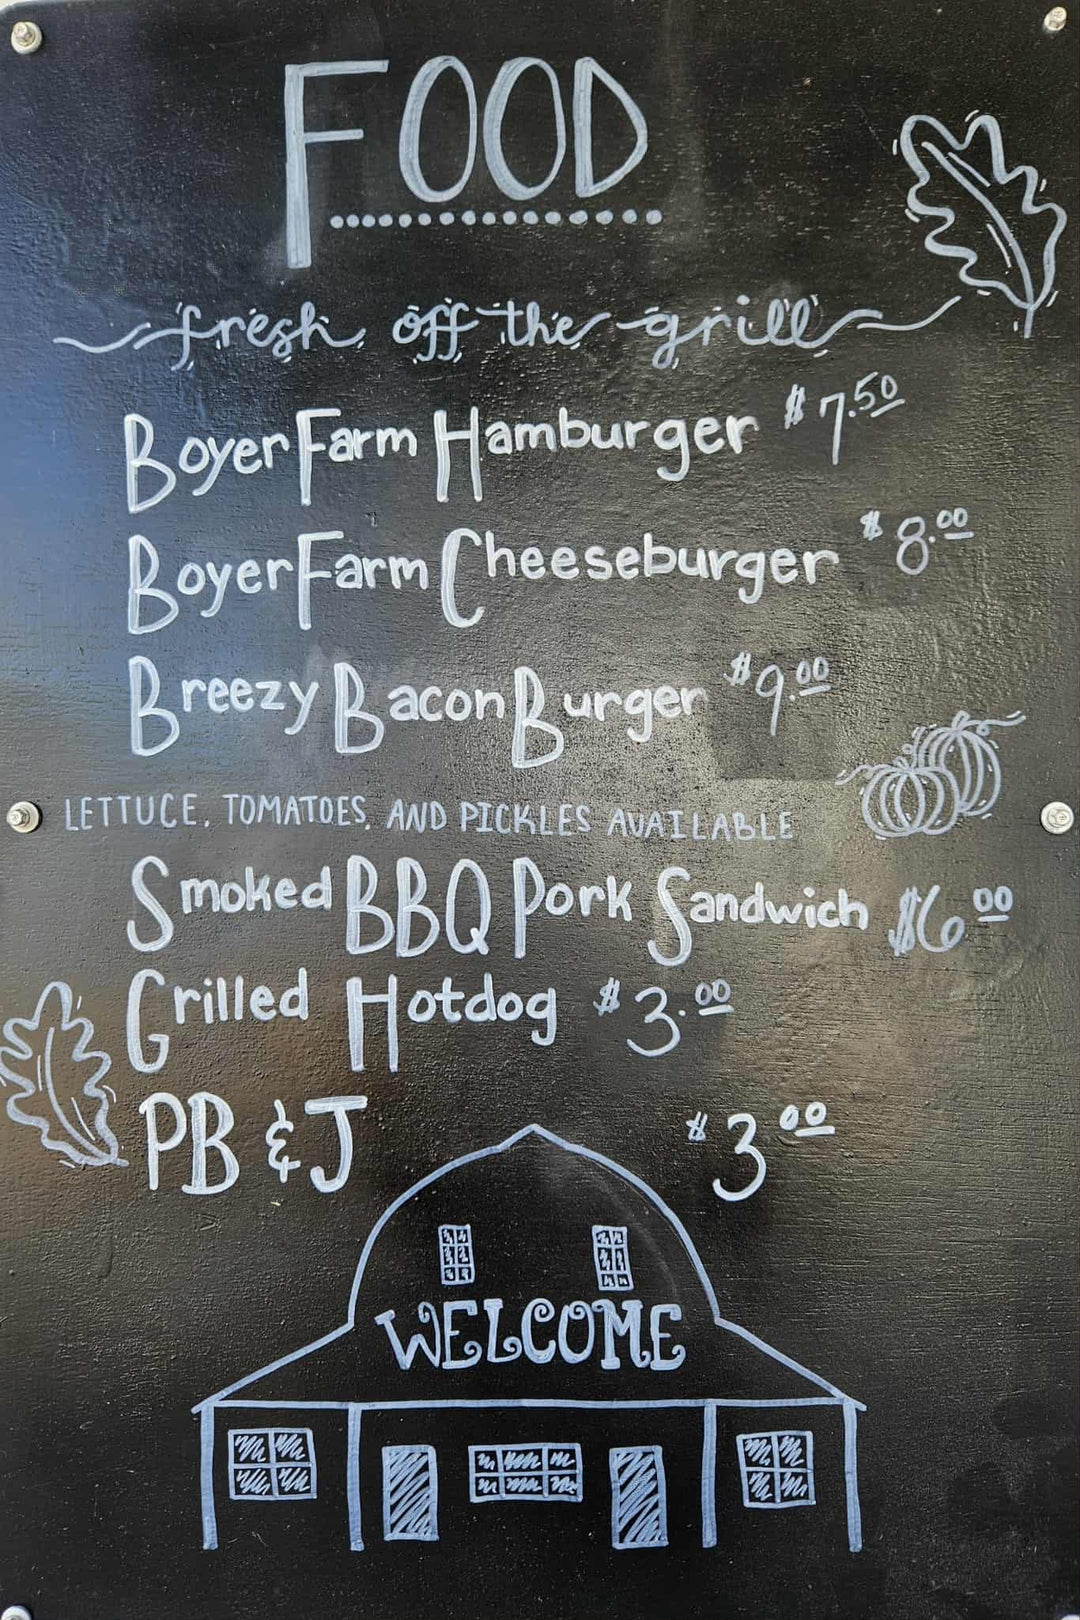 FOOD
fresh off the grill
Boyer Farm Hamburger $7.50
Boyer Farm Cheeseburger $8.00
Breezy Bacon Burger $9.00
LETTUCE, TOMATOES, AND PICKLES AVAILABLE
Smoked BBQ Pork Sandwich $6 00
Grilled Hotdog $3.00
PB & J $3 00
WELCOME